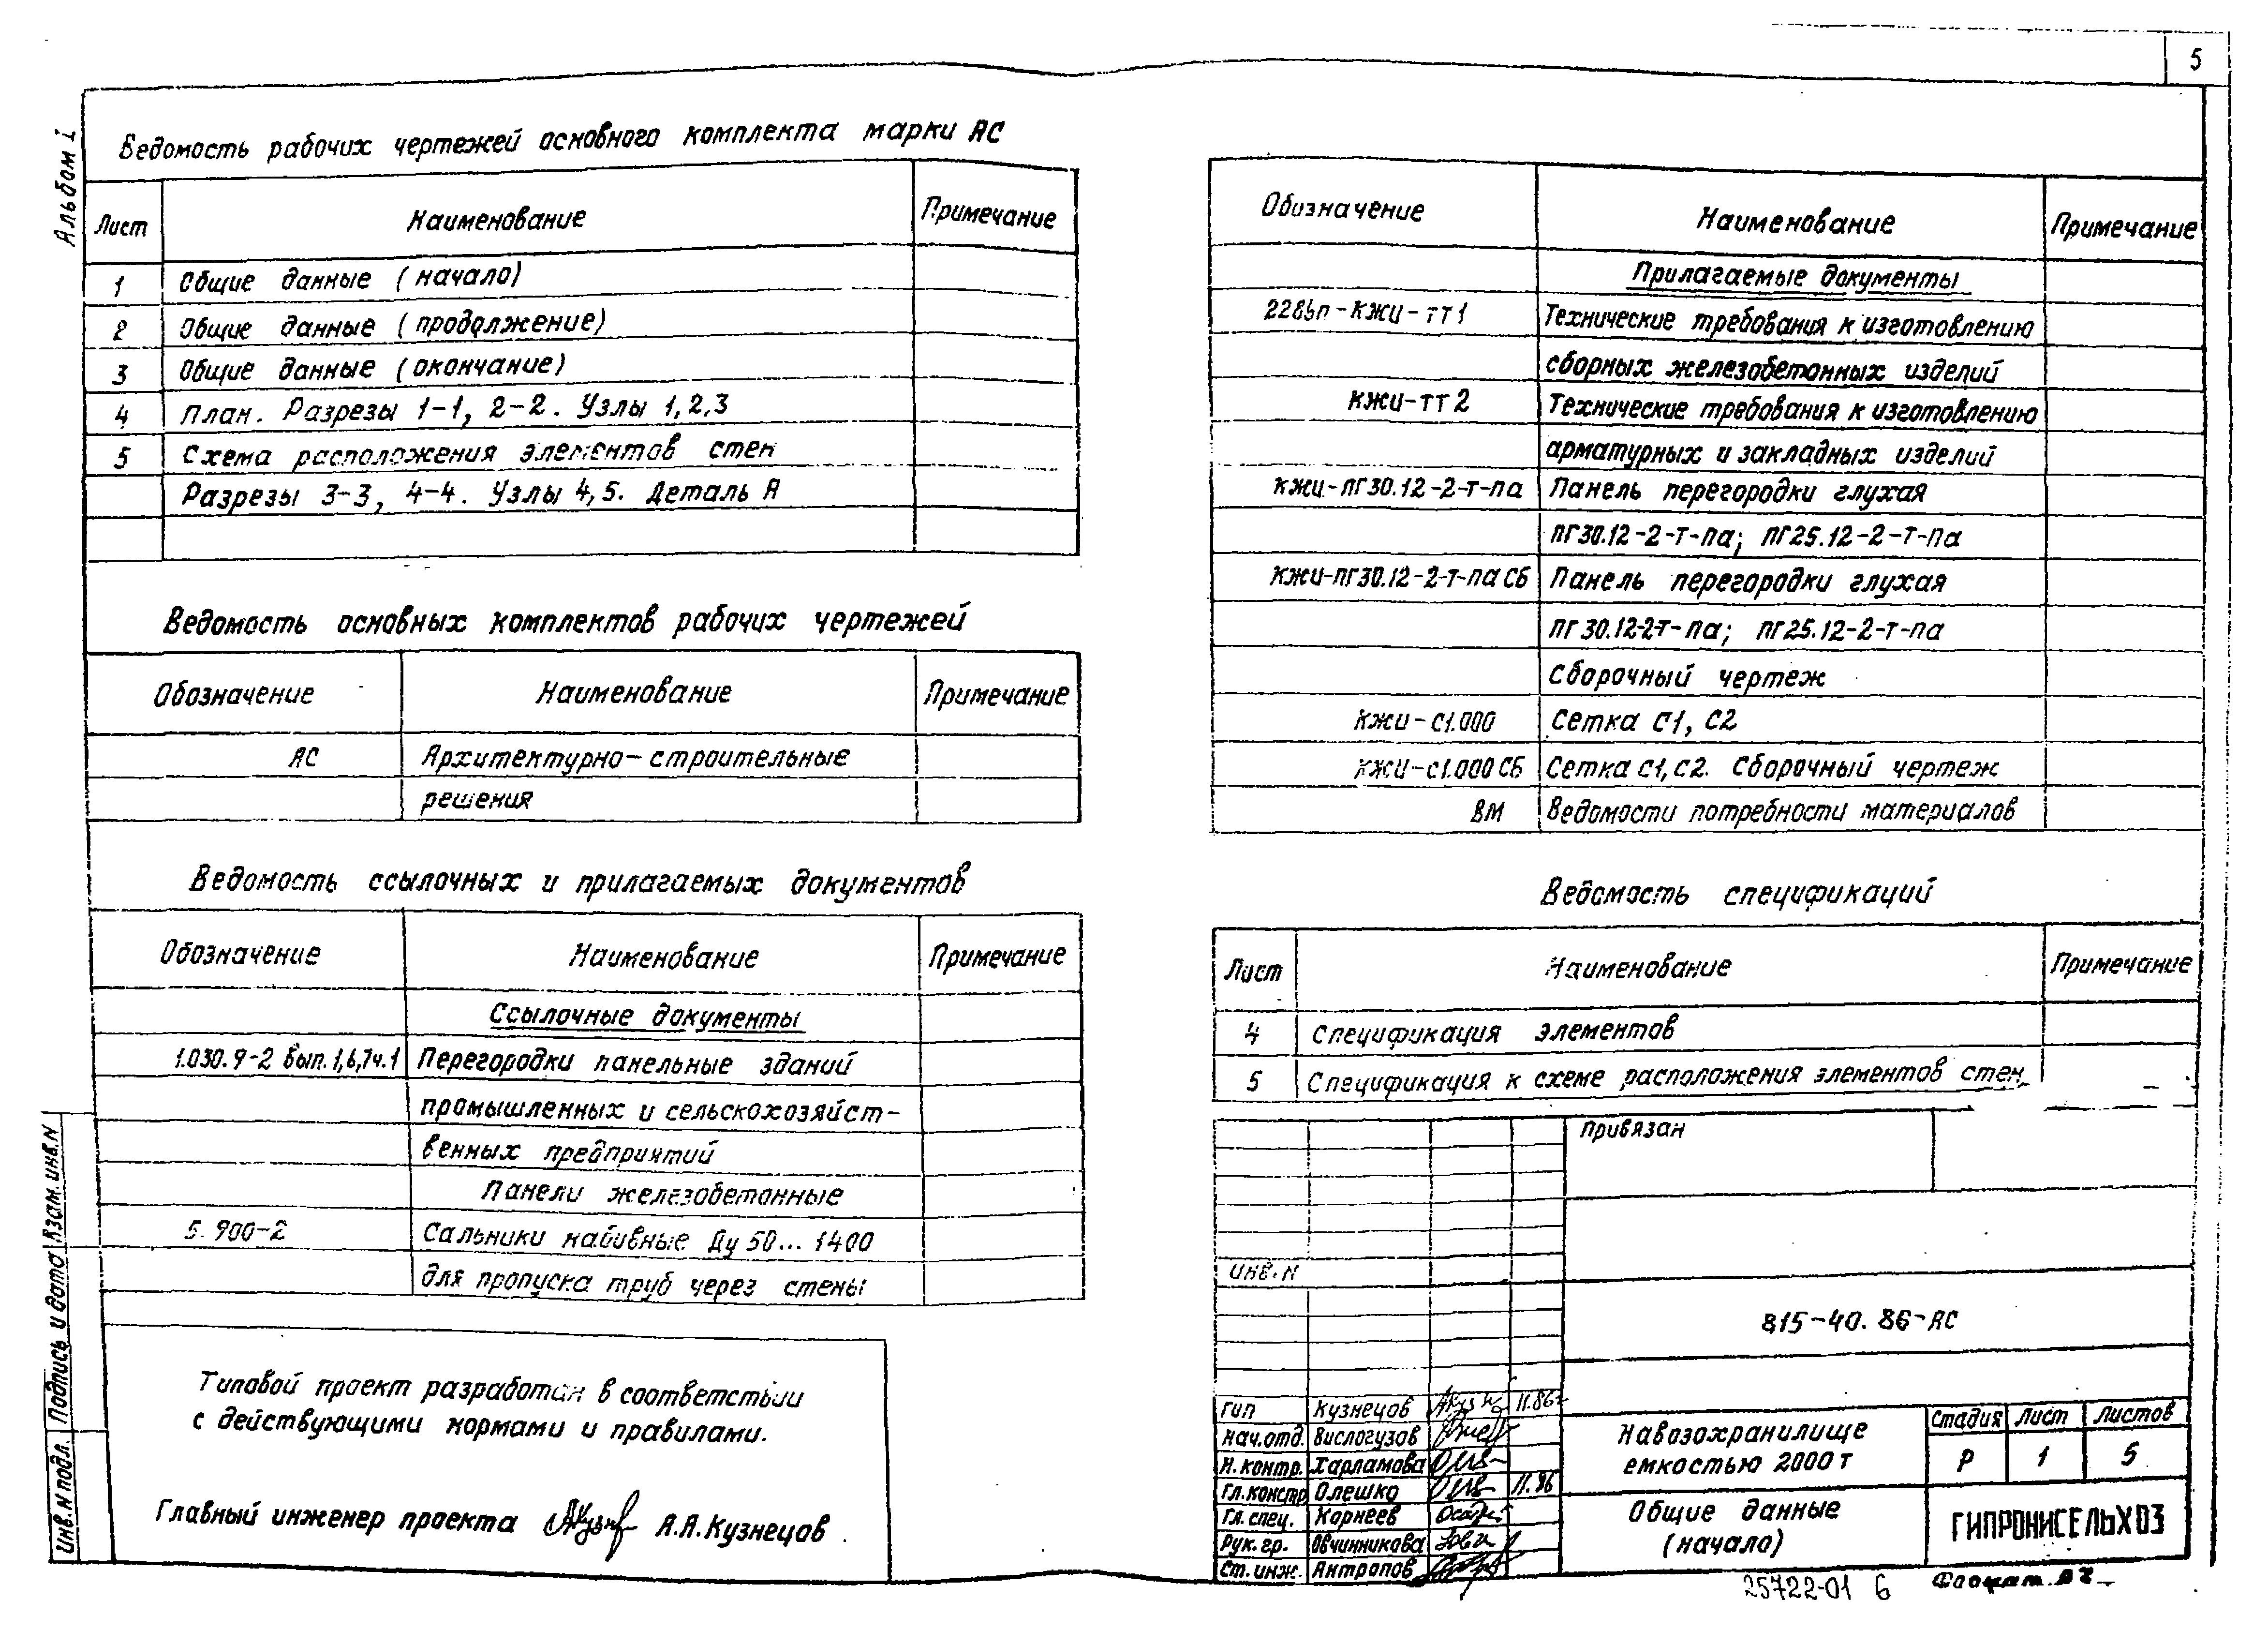 5
Альбом I
Ведомость рабочих чертежей основного комплекта марки АС
Лист Наименование Примечание
1 Общие данные (начало)
2 Общие данные (продолжение)
3 Общие данные (окончание)
4 План. Разрезы 1-1, 2-2. Узлы 1,2,3
5 Схема расположения элементов стен
Разрезы 3-3, 4-4. Узлы 4,5. Деталь А
Ведомость основных комплектов рабочих чертежей
Обозначение Наименование Примечание
АС Архитектурно-строительные
решения
Ведомость ссылочных и прилагаемых документов
Обозначение Наименование Примечание
Ссылочные документы
1.030.9-2 вып.1,6,7ч.1 Перегородки панельные зданий
промышленных и сельскохозяйст-
венных предприятий
Панели железобетонные
5.900-2 Сальники набивные Ду 50... 1400
для пропуска труб через стены
Типовой проект разработан в соответствии
с действующими нормами и правилами.
Главный инженер проекта А.А.Кузнецов
Инв.N подл. Подпись и дата Взам.инв.N
Обозначение Наименование Примечание
Прилагаемые документы
КЖИ-ТТ1 Технические требования к изготовлению
сборных железобетонных изделий
КЖИ-ТТ2 Технические требования к изготовлению
арматурных и закладных изделий
КЖИ-ПГ30.12-2-Т-па Панель перегородки глухая
ПГ30.12-2-Т-па; ПГ25.12-2-Т-па
КЖИ-ПГ30.12-2-Т-па СБ Панель перегородки глухая
ПГ30.12-2-Т-па; ПГ25.12-2-Т-па
Сборочный чертеж
КЖИ-С1.000 Сетка С1, С2
КЖИ-С1.000 СБ Сетка С1, С2. Сборочный чертеж
ВМ Ведомости потребности материалов
Ведомость спецификаций
Лист Наименование Примечание
4 Спецификация элементов
5 Спецификация к схеме расположения элементов стен
Привязан
инв.N
815-40.86-АС
ГИП Кузнецов 11.86г
Нач.отд. Вислогузов
Н.контр. Харламова
Гл.констр Олешко 11.86
Гл.спец. Корнеев
Рук.гр. Овчинникова
Ст.инж. Антропов
Навозохранилище
емкостью 2000т
Стадия Лист Листов
Р 1 5
Общие данные
(начало)
ГИПРОНИСЕЛЬХОЗ
25722-01 6